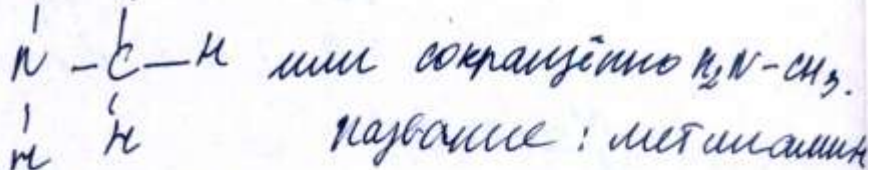 N – C – H или сокращённо H₂N-CH₃.
H H название : метиламин